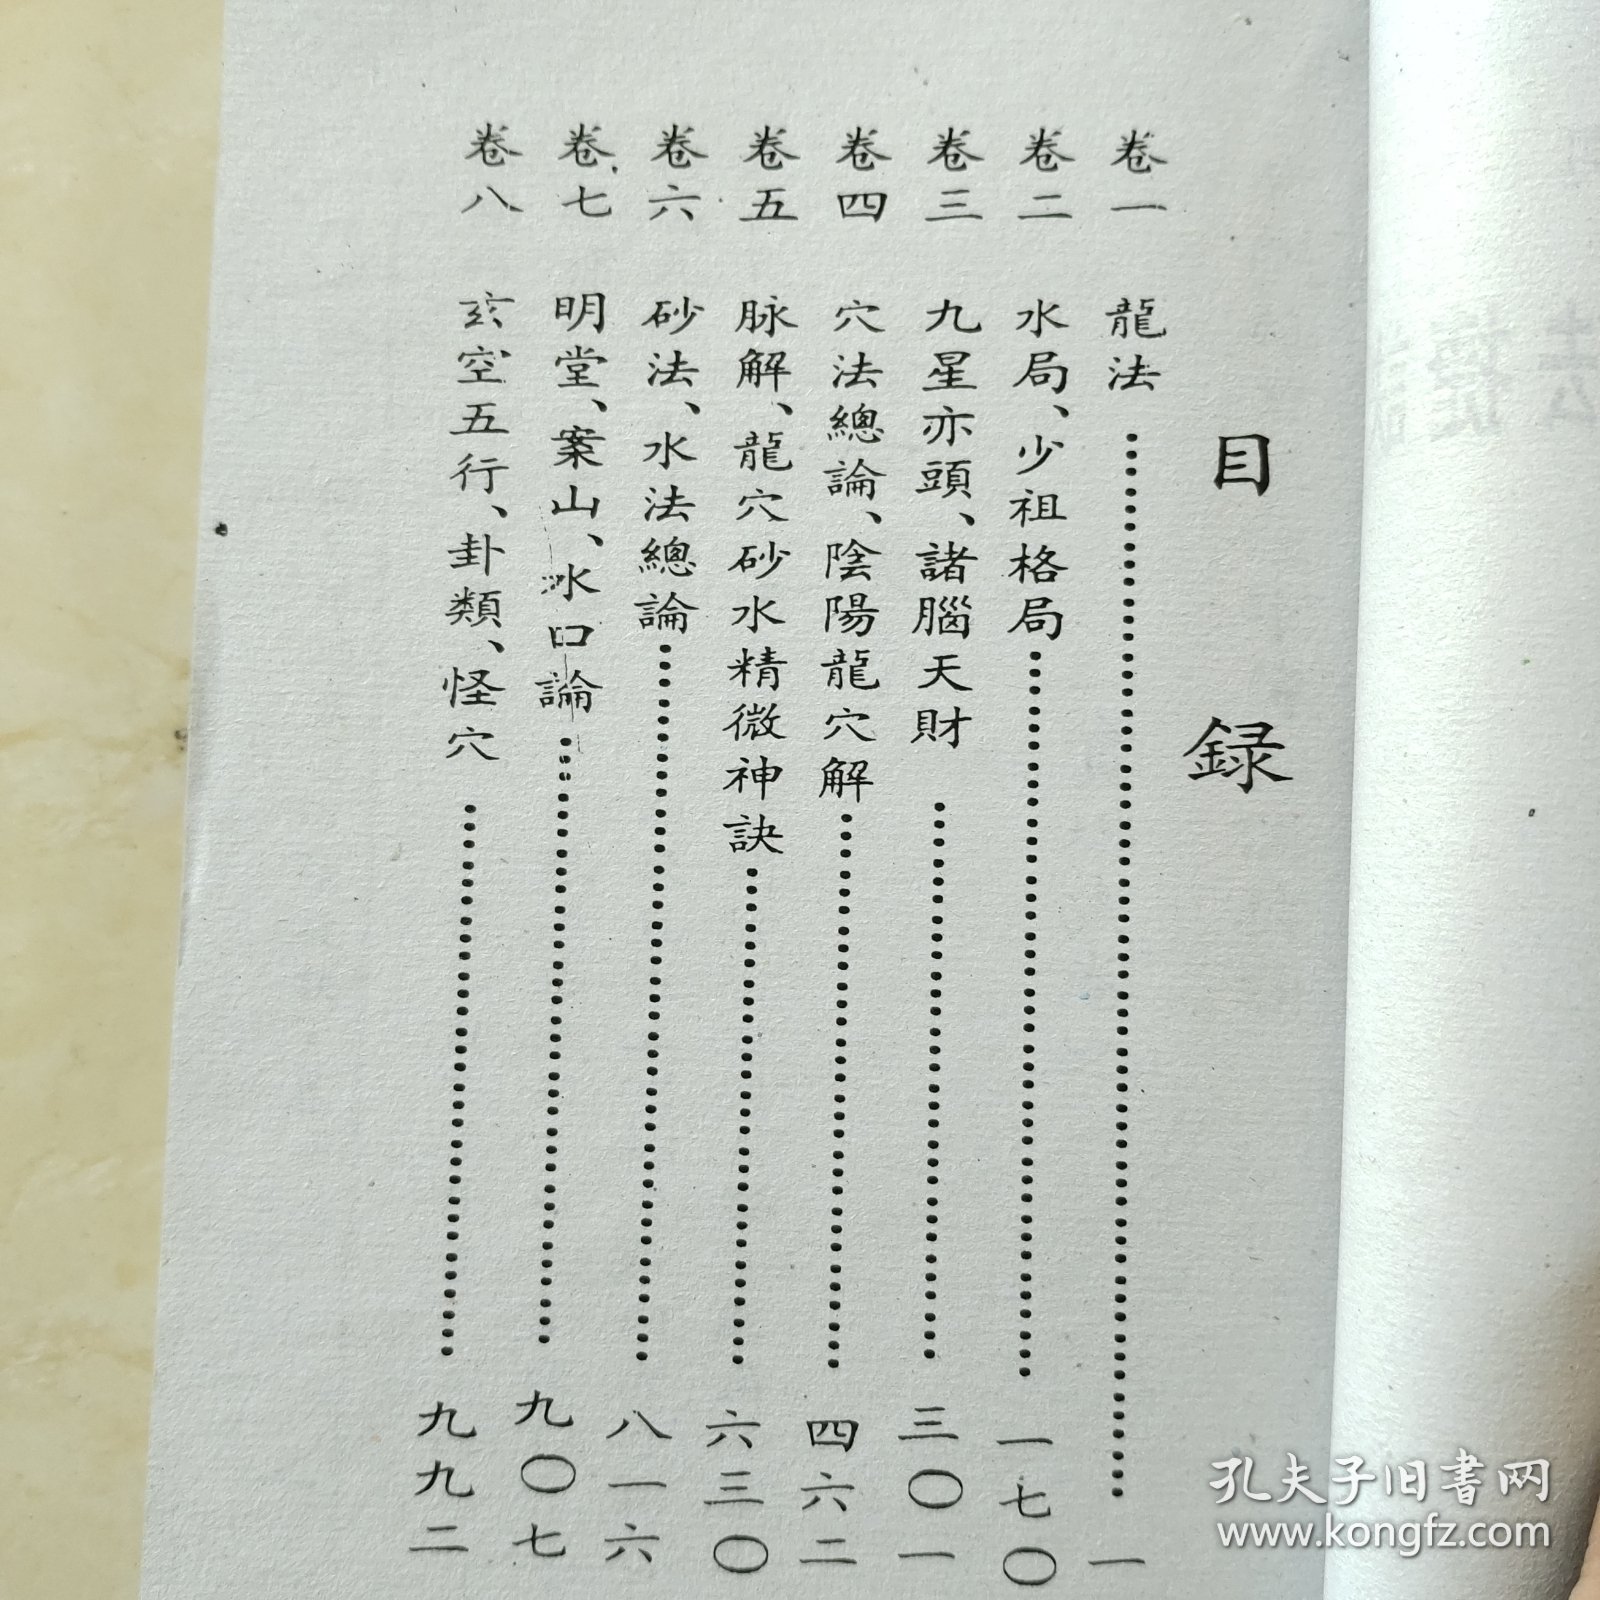 目錄
卷一 龍法 一
卷二 水局、少祖格局 一七〇
卷三 九星亦頭、諸腦天財 三〇一
卷四 穴法總論、陰陽龍穴解 四六二
卷五 脉解、龍穴砂水精微神訣 六三〇
卷六 砂法、水法總論 八一六
卷七 明堂、案山、水口論 九〇七
卷八 玄空五行、卦類、怪穴 九九二
孔夫子旧书网
www.kongfz.com